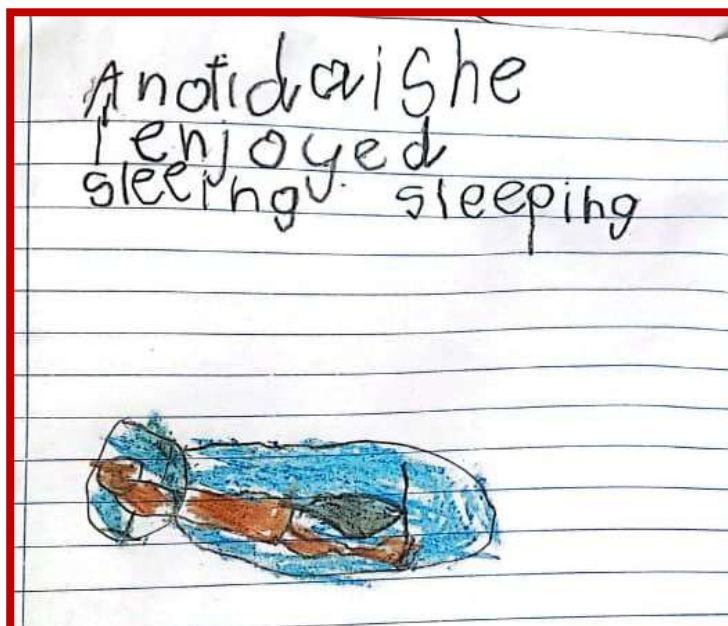 Anotidaishe
I enjoyed
sleeing. sleeping